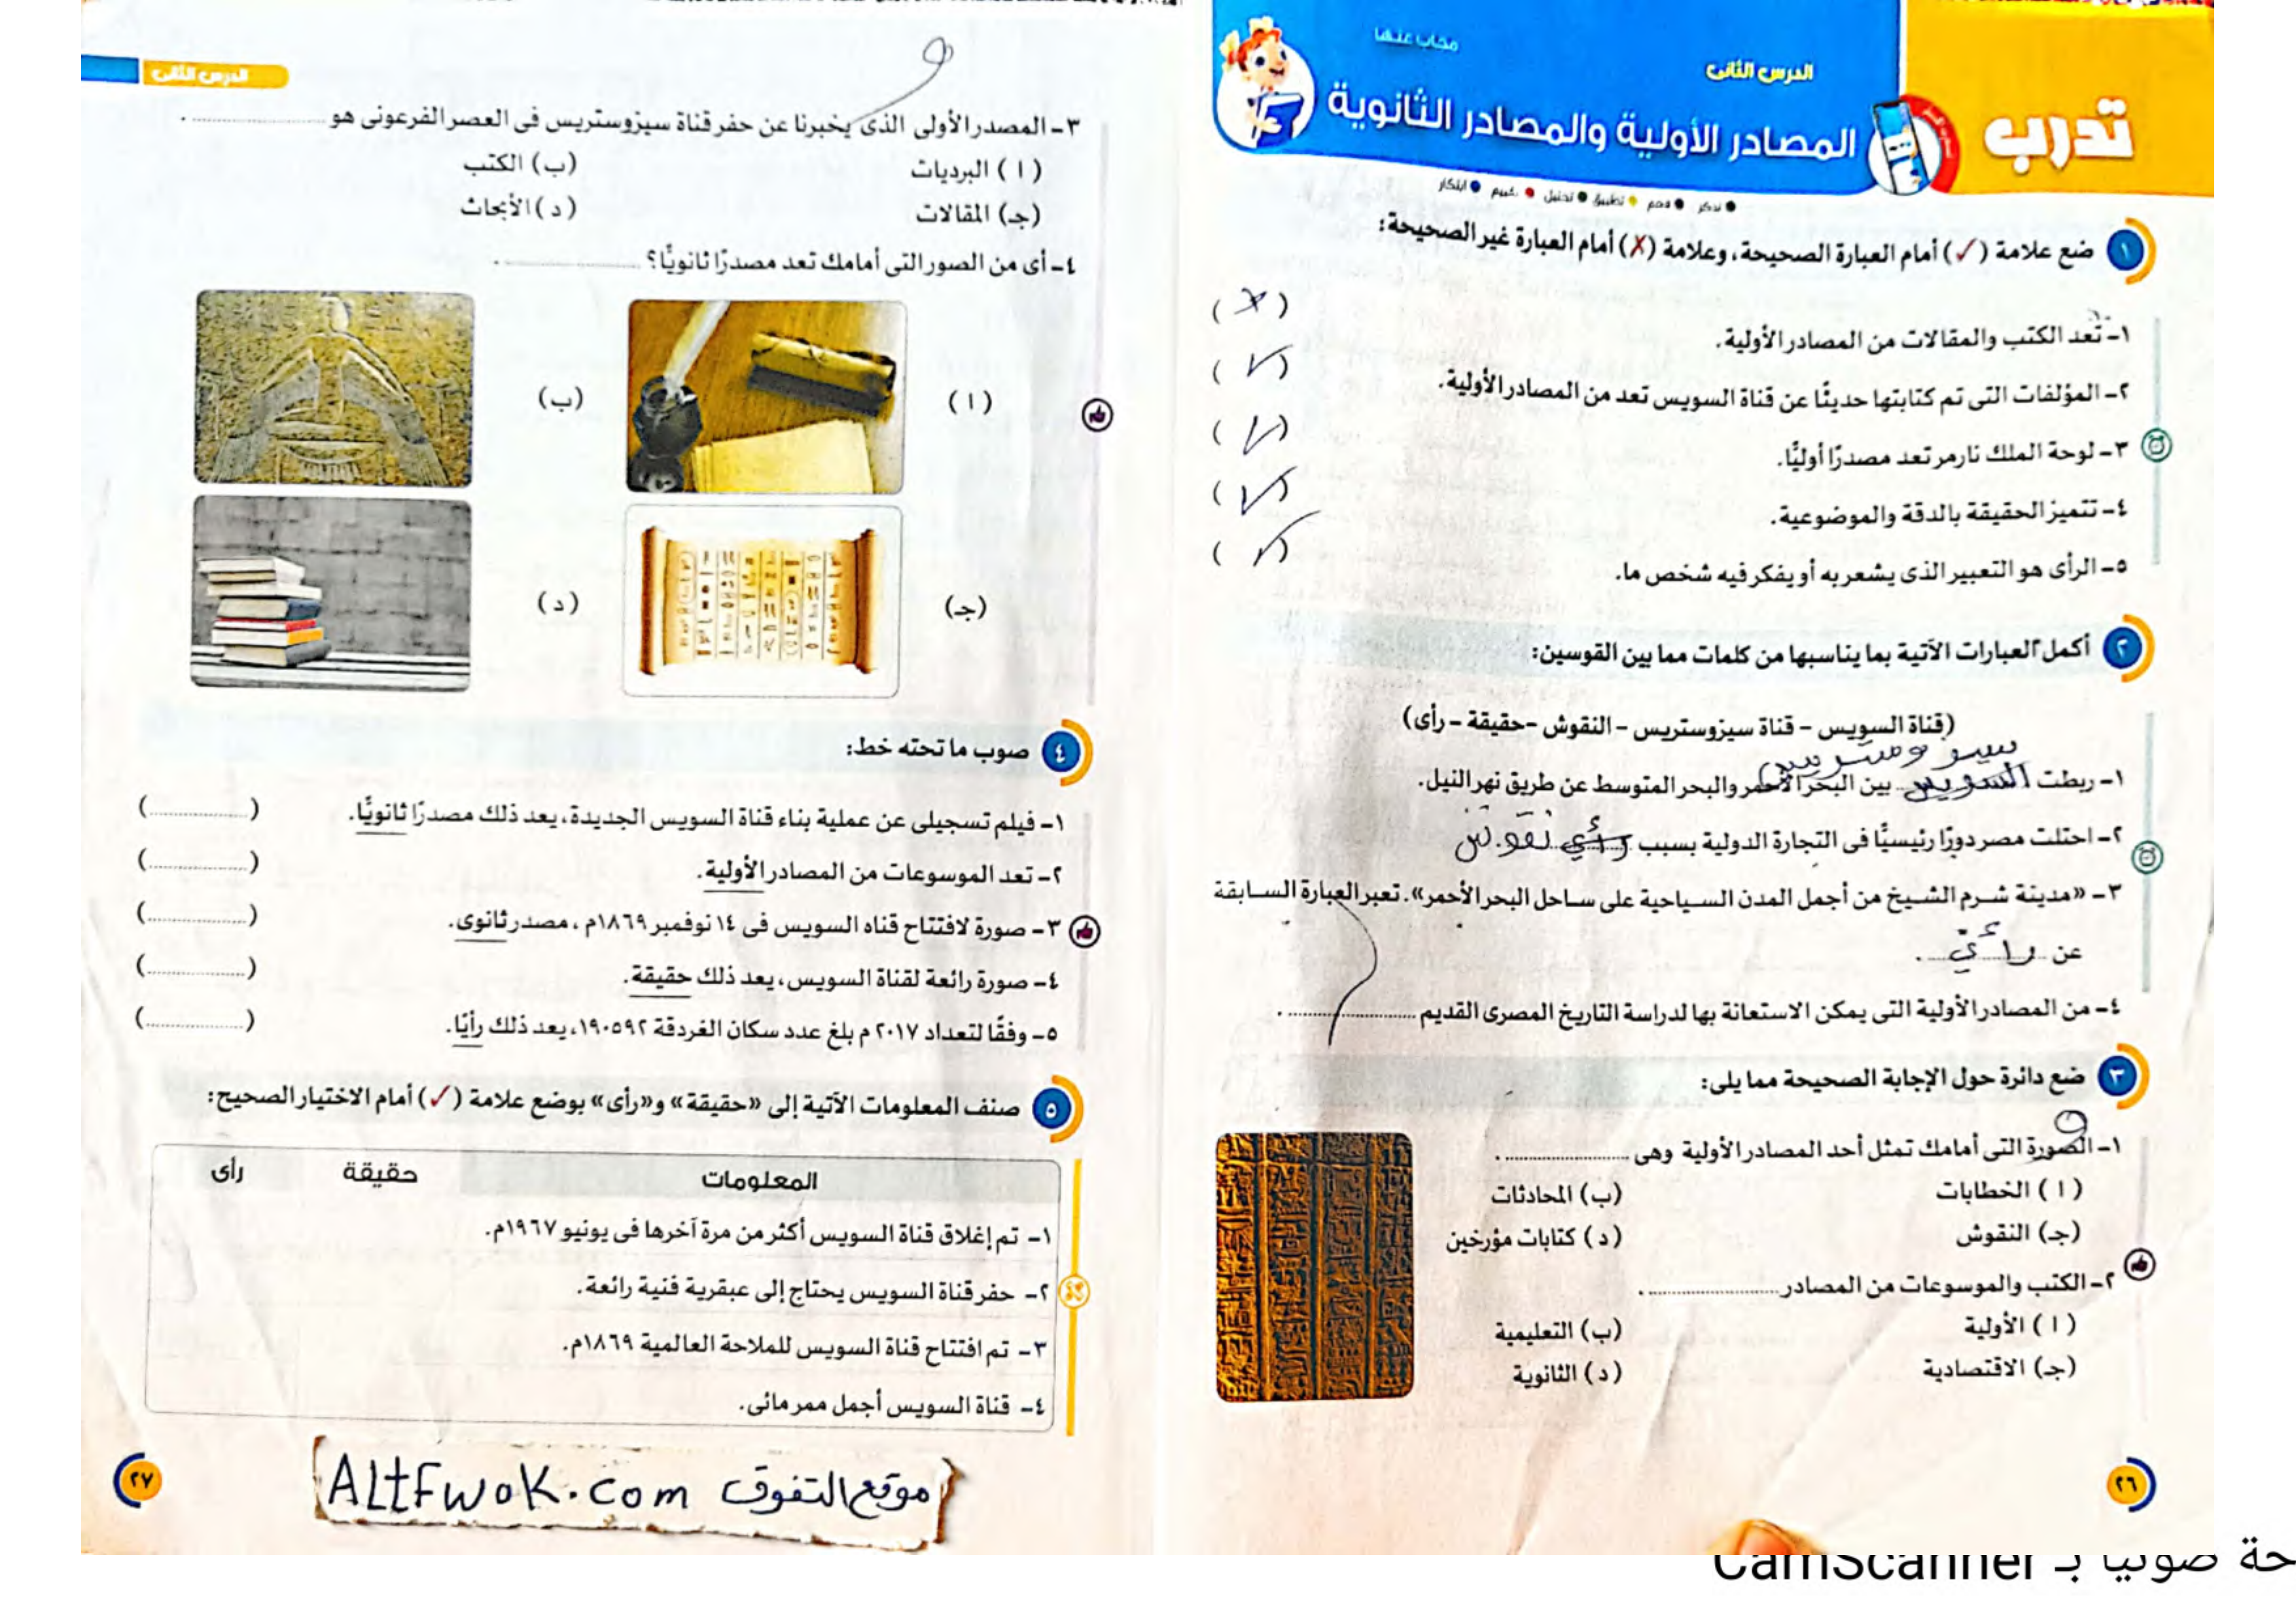 تدرب
الدرس الثانى
مجاب عنها
المصادر الأولية والمصادر الثانوية
تذكر فهم تطبيق تحليل تقييم ابتكار
١ ضع علامة (✓) أمام العبارة الصحيحة، وعلامة (✗) أمام العبارة غير الصحيحة:
١- تعد الكتب والمقالات من المصادر الأولية. (✗)
٢- المؤلفات التى تم كتابتها حديثًا عن قناة السويس تعد من المصادر الأولية. (✓)
٣- لوحة الملك نارمر تعد مصدرًا أوليًّا. (✓)
٤- تتميز الحقيقة بالدقة والموضوعية. (✓)
٥- الرأى هو التعبير الذى يشعر به أو يفكر فيه شخص ما. (✓)
٢ أكمل العبارات الآتية بما يناسبها من كلمات مما بين القوسين:
(قناة السويس - قناة سيزوستريس - النقوش - حقيقة - رأى)
١- ربطت السويس بين البحر الأحمر والبحر المتوسط عن طريق نهر النيل.
٢- احتلت مصر دورًا رئيسيًّا فى التجارة الدولية بسبب رأي نقوش
٣- «مدينة شرم الشيخ من أجمل المدن السياحية على ساحل البحر الأحمر». تعبر العبارة السابقة
عن رأي .
٤- من المصادر الأولية التى يمكن الاستعانة بها لدراسة التاريخ المصرى القديم .................... .
٣ ضع دائرة حول الإجابة الصحيحة مما يلى:
١- الصورة التى أمامك تمثل أحد المصادر الأولية وهى .................... .
(ا) الخطابات (ب) المحادثات
(جـ) النقوش (د) كتابات مؤرخين
٢- الكتب والموسوعات من المصادر .................... .
(ا) الأولية (ب) التعليمية
(جـ) الاقتصادية (د) الثانوية
٢٦
الدرس الثانى
٣- المصدر الأولى الذى يخبرنا عن حفر قناة سيزوستريس فى العصر الفرعونى هو .................... .
(ا) البرديات (ب) الكتب
(جـ) المقالات (د) الأبحاث
٤- أى من الصور التى أمامك تعد مصدرًا ثانويًّا؟ .................... .
(ا) (ب)
(جـ) (د)
٤ صوب ما تحته خط:
١- فيلم تسجيلى عن عملية بناء قناة السويس الجديدة، يعد ذلك مصدرًا ثانويًّا. (....................)
٢- تعد الموسوعات من المصادر الأولية. (....................)
٣- صورة لافتتاح قناه السويس فى ١٤ نوفمبر ١٨٦٩م، مصدر ثانوى. (....................)
٤- صورة رائعة لقناة السويس، يعد ذلك حقيقة. (....................)
٥- وفقًا لتعداد ٢٠١٧ م بلغ عدد سكان الغردقة ١٩٠٥٩٢، يعد ذلك رأيًا. (....................)
٥ صنف المعلومات الآتية إلى «حقيقة» و«رأى» بوضع علامة (✓) أمام الاختيار الصحيح:
المعلومات حقيقة رأى
١- تم إغلاق قناة السويس أكثر من مرة آخرها فى يونيو ١٩٦٧م.
٢- حفر قناة السويس يحتاج إلى عبقرية فنية رائعة.
٣- تم افتتاح قناة السويس للملاحة العالمية ١٨٦٩م.
٤- قناة السويس أجمل ممر مائى.
موقع التفوق ALtFwoK.com
٢٧
حة ضوئيا بـ CamScanner